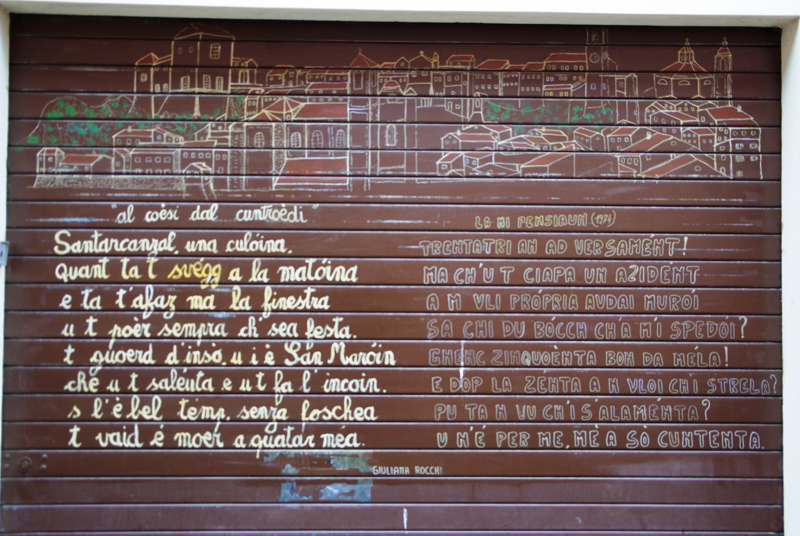 "al coèsi dal cuntroèdi"
Santarcanzal, una culóina,
quant ta t svégg a la matóina
e ta t'afaz ma la finestra
u t poèr sempra ch' sea festa.
t guoerd d'insò, u i è San Maróin
chè u t saléuta e u t fa l' incoin.
s l'è bel témp, senza foschea
t vaid é moèr a quatar méa.
LA MI PENSIOUN (1974)
TRENTATRI AN AD VERSAMÉNT!
MA CH'U T CIAPA UN AZIDENT
A M VLI PRÓPRIA AVDAI MUROÌ
SA CHI DU BÓCCH CH'A M'I SPEDOÌ?
GNENC ZINQUOÈNTA BON DA MÉLA!
E DOP LA ZÉNTA A N VLOI CH'I STRELA?
PU TA N VU CH'I S'ALAMÉNTA?
U N'É PER ME, MÈ A SÒ CUNTENTA.
GIULIANA ROCCHI